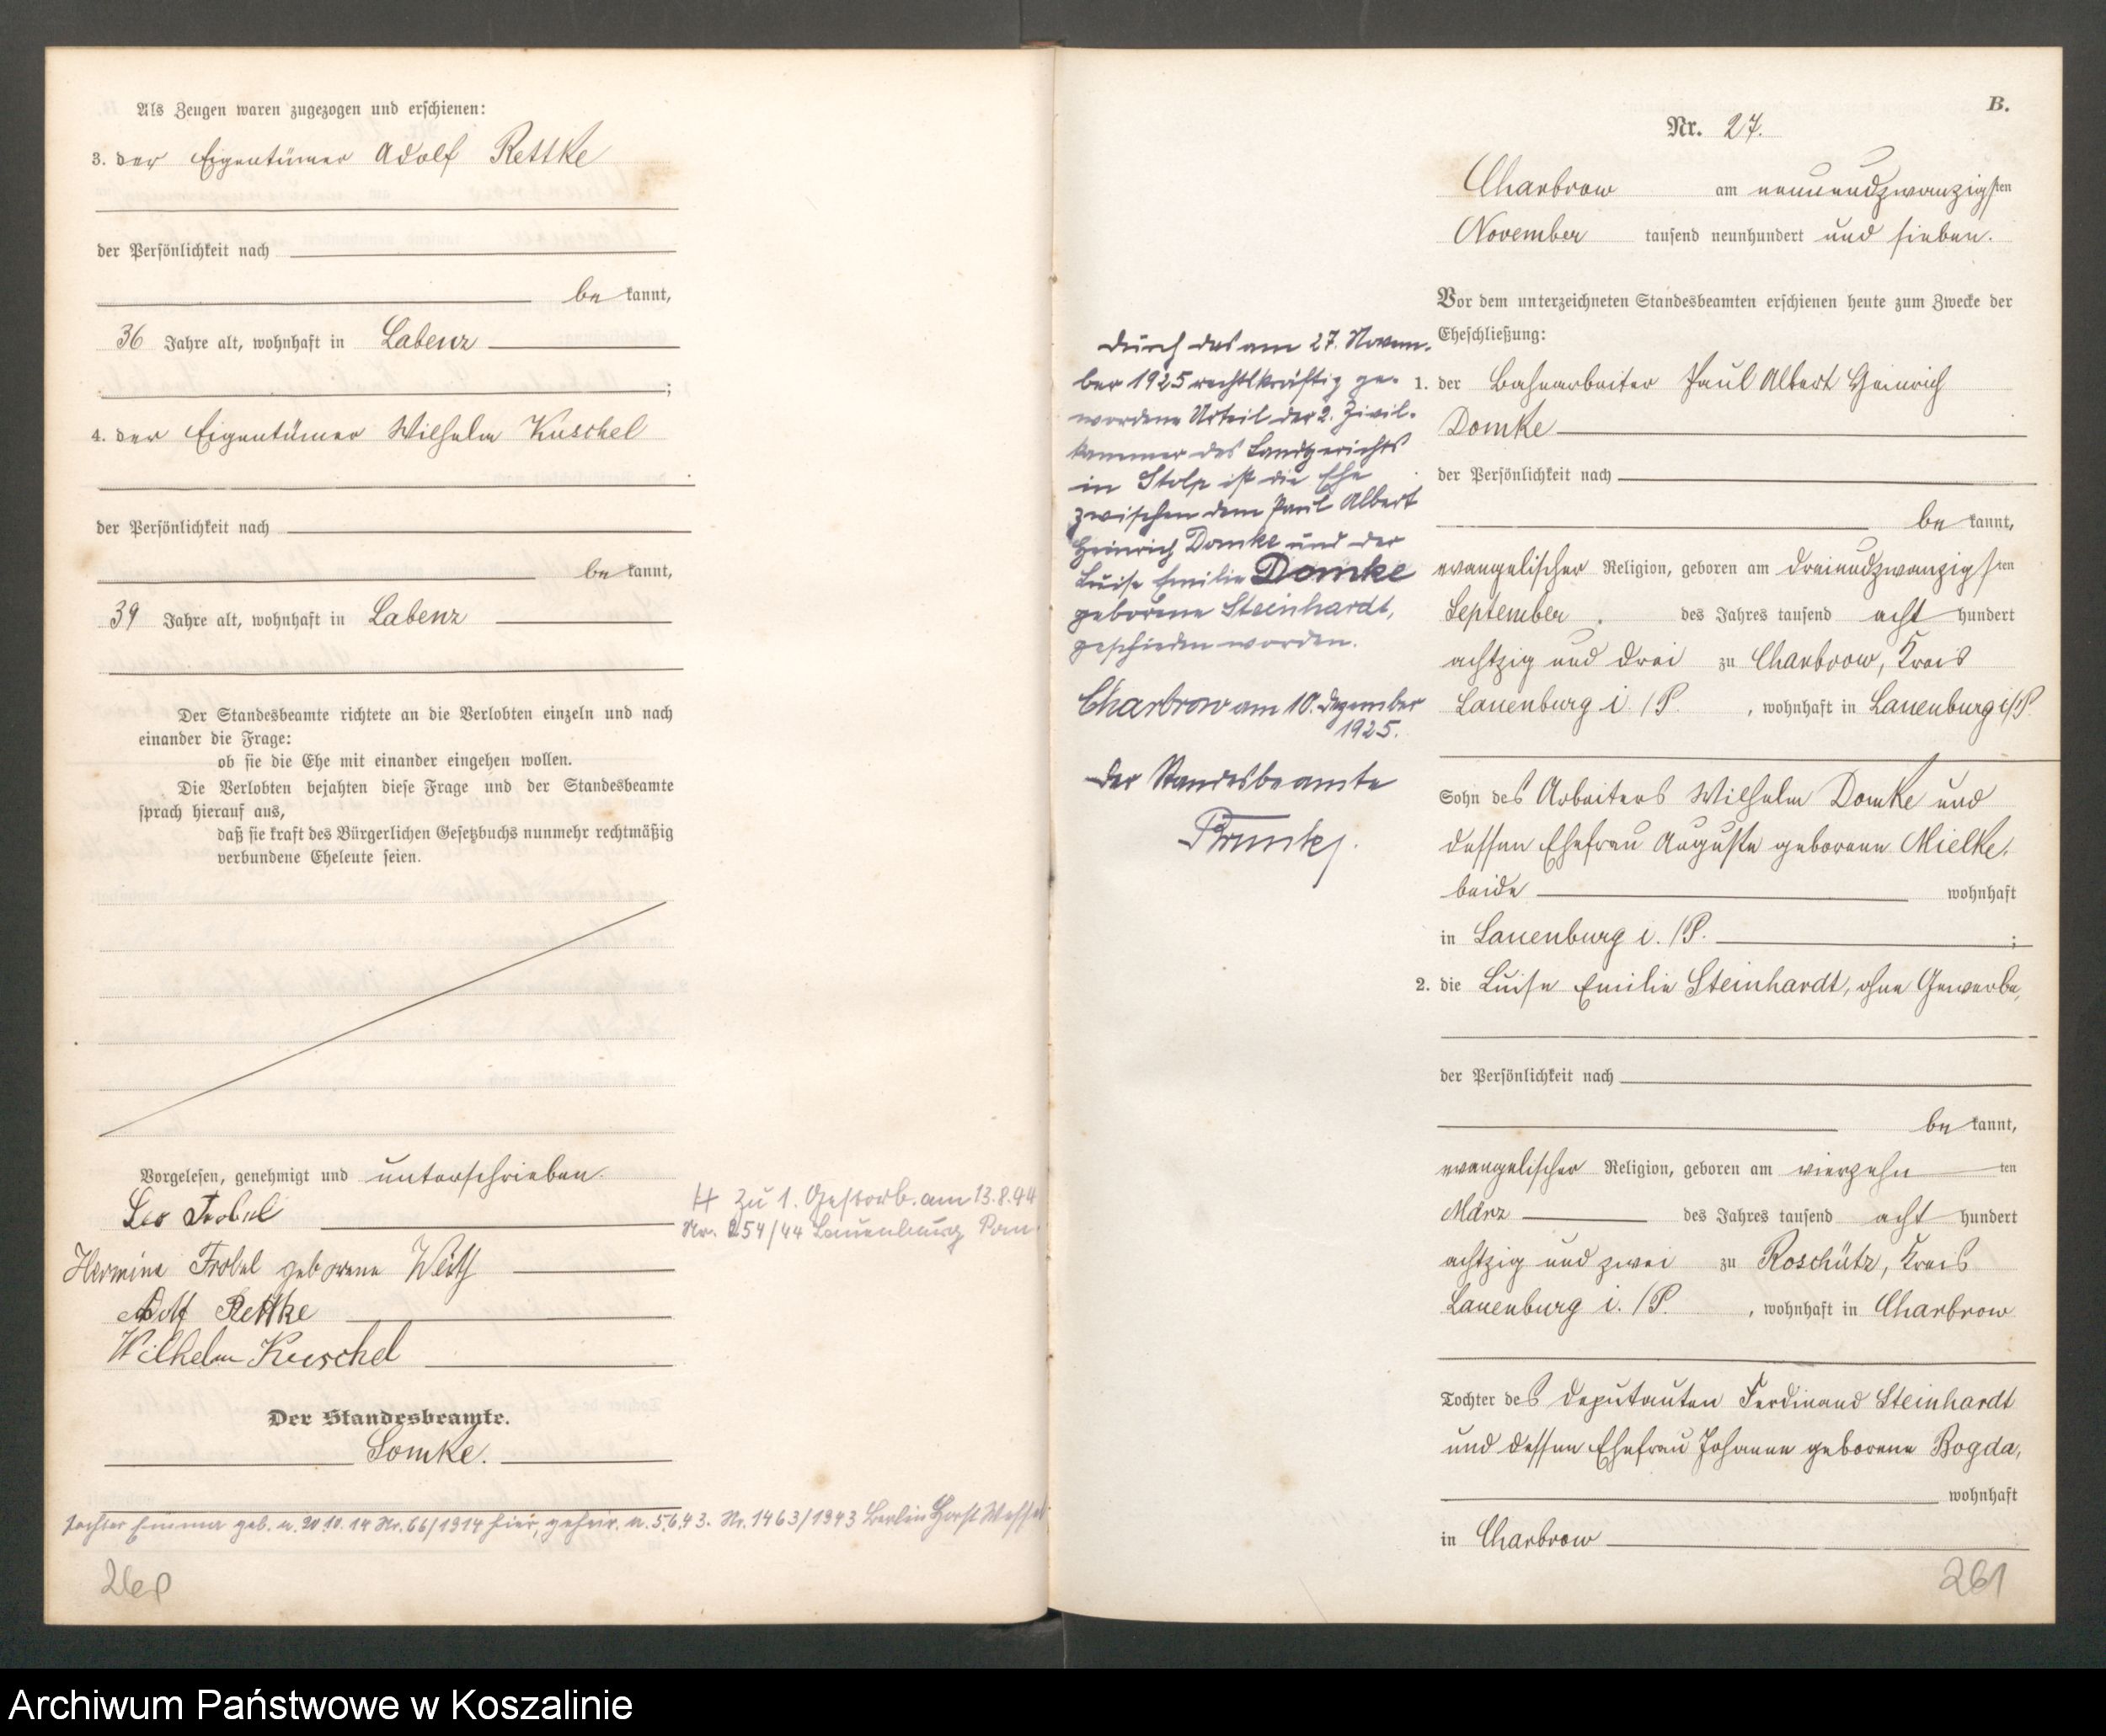 Als Zeugen waren zugezogen und erschienen:
3. der Eigentümer Adolf Rettke
der Persönlichkeit nach
be kannt,
36 Jahre alt, wohnhaft in Labenz
;
4. der Eigentümer Wilhelm Kuschel
der Persönlichkeit nach
be kannt,
39 Jahre alt, wohnhaft in Labenz
Der Standesbeamte richtete an die Verlobten einzeln und nach
einander die Frage:
ob sie die Ehe mit einander eingehen wollen.
Die Verlobten bejahten diese Frage und der Standesbeamte
sprach hierauf aus,
daß sie kraft des Bürgerlichen Gesetzbuchs nunmehr rechtmäßig
verbundene Eheleute seien.
Vorgelesen, genehmigt und unterschrieben.
Leo Frobel
Hermine Frobel geborene
Adolf Rettke
Wilhelm Kuschel
Der Standesbeamte.
Lomke.
zu 1. Gestorb. am 13.8.44
Nr. 254/44 Lauenburg Pom.
Tochter Emma geb. a. 20.10.14 Nr. 66/1914 hier, geheir. a. 5.6.43. Nr. 1463/1943 Berlin Horst Wessel
260
B.
Nr. 27.
Charbrow am neunundzwanzigsten
November tausend neunhundert und sieben.
Vor dem unterzeichneten Standesbeamten erschienen heute zum Zwecke der
Eheschließung:
1. der Bahnarbeiter Paul Albert Heinrich
Domke
der Persönlichkeit nach
be kannt,
evangelischer Religion, geboren am dreiundzwanzigsten
September des Jahres tausend acht hundert
achtzig und drei zu Charbrow, Kreis
Lauenburg i./P. , wohnhaft in Lauenburg i/P.
Sohn des Arbeiters Wilhelm Domke und
dessen Ehefrau Auguste geborene Mielke,
beide wohnhaft
in Lauenburg i./P. ;
2. die Luise Emilie Steinhardt, ohne Gewerbe,
der Persönlichkeit nach
be kannt,
evangelischer Religion, geboren am vierzehn ten
März des Jahres tausend acht hundert
achtzig und zwei zu Roschütz, Kreis
Lauenburg i./P. , wohnhaft in Charbrow
Tochter des Deputanten Ferdinand Steinhardt
und dessen Ehefrau Johanne geborene Bogda,
wohnhaft
in Charbrow
Durch das am 27. Novem-
ber 1925 rechtskräftig ge-
wordene Urteil der 2. Zivil-
kammer des Landgerichts
in Stolp ist die Ehe
zwischen dem Paul Albert
Heinrich Domke und der
Luise Emilie Domke
geborene Steinhardt,
geschieden worden.
Charbrow am 10. Dezember
1925.
Der Standesbeamte
261
Archiwum Państwowe w Koszalinie